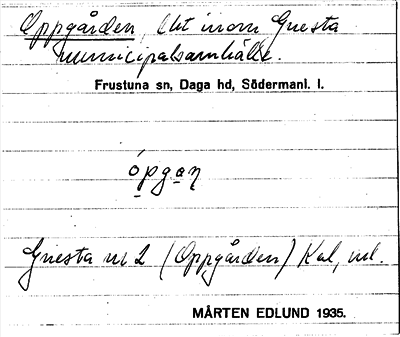 Oppgården, låt inom Gnesta
municipalsamhälle.
Frustuna sn, Daga hd, Södermanl. l.
ópgaη
Gnesta nr 2 (Oppgården) Kal, vol.
MÅRTEN EDLUND 1935.